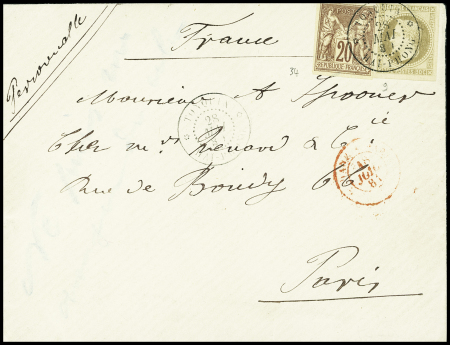 Personnelle
France
20
REPUBLIQUE FRANÇAISE
34
9
Monsieur A Spooner
28
Chez mrs Renard & Cie
Rue de Bondy 66
Paris